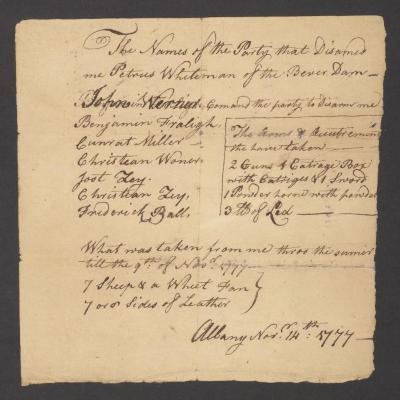 The Names of the Party that Disarmed
me Petrus Whiteman of the Bever Dam
Comand the party to Disarm me
Benjamin Fraligh
Cunrat Miller
Christian Woner
Jost Zey.
Christian Zey,
Frederick Ball.
The Arms & Acutrements
the have taken
2 Guns 1 Catrage Box
with Catriges & 1 Sword
1 Pouder horne with pouder
3 lb of Led
What was taken from me thros the sumer
till the 9th of Novr. 1777
7 Sheep & a Wheet Fan
7 or 8 Sides of Leather
Albany Novr. 14th 1777